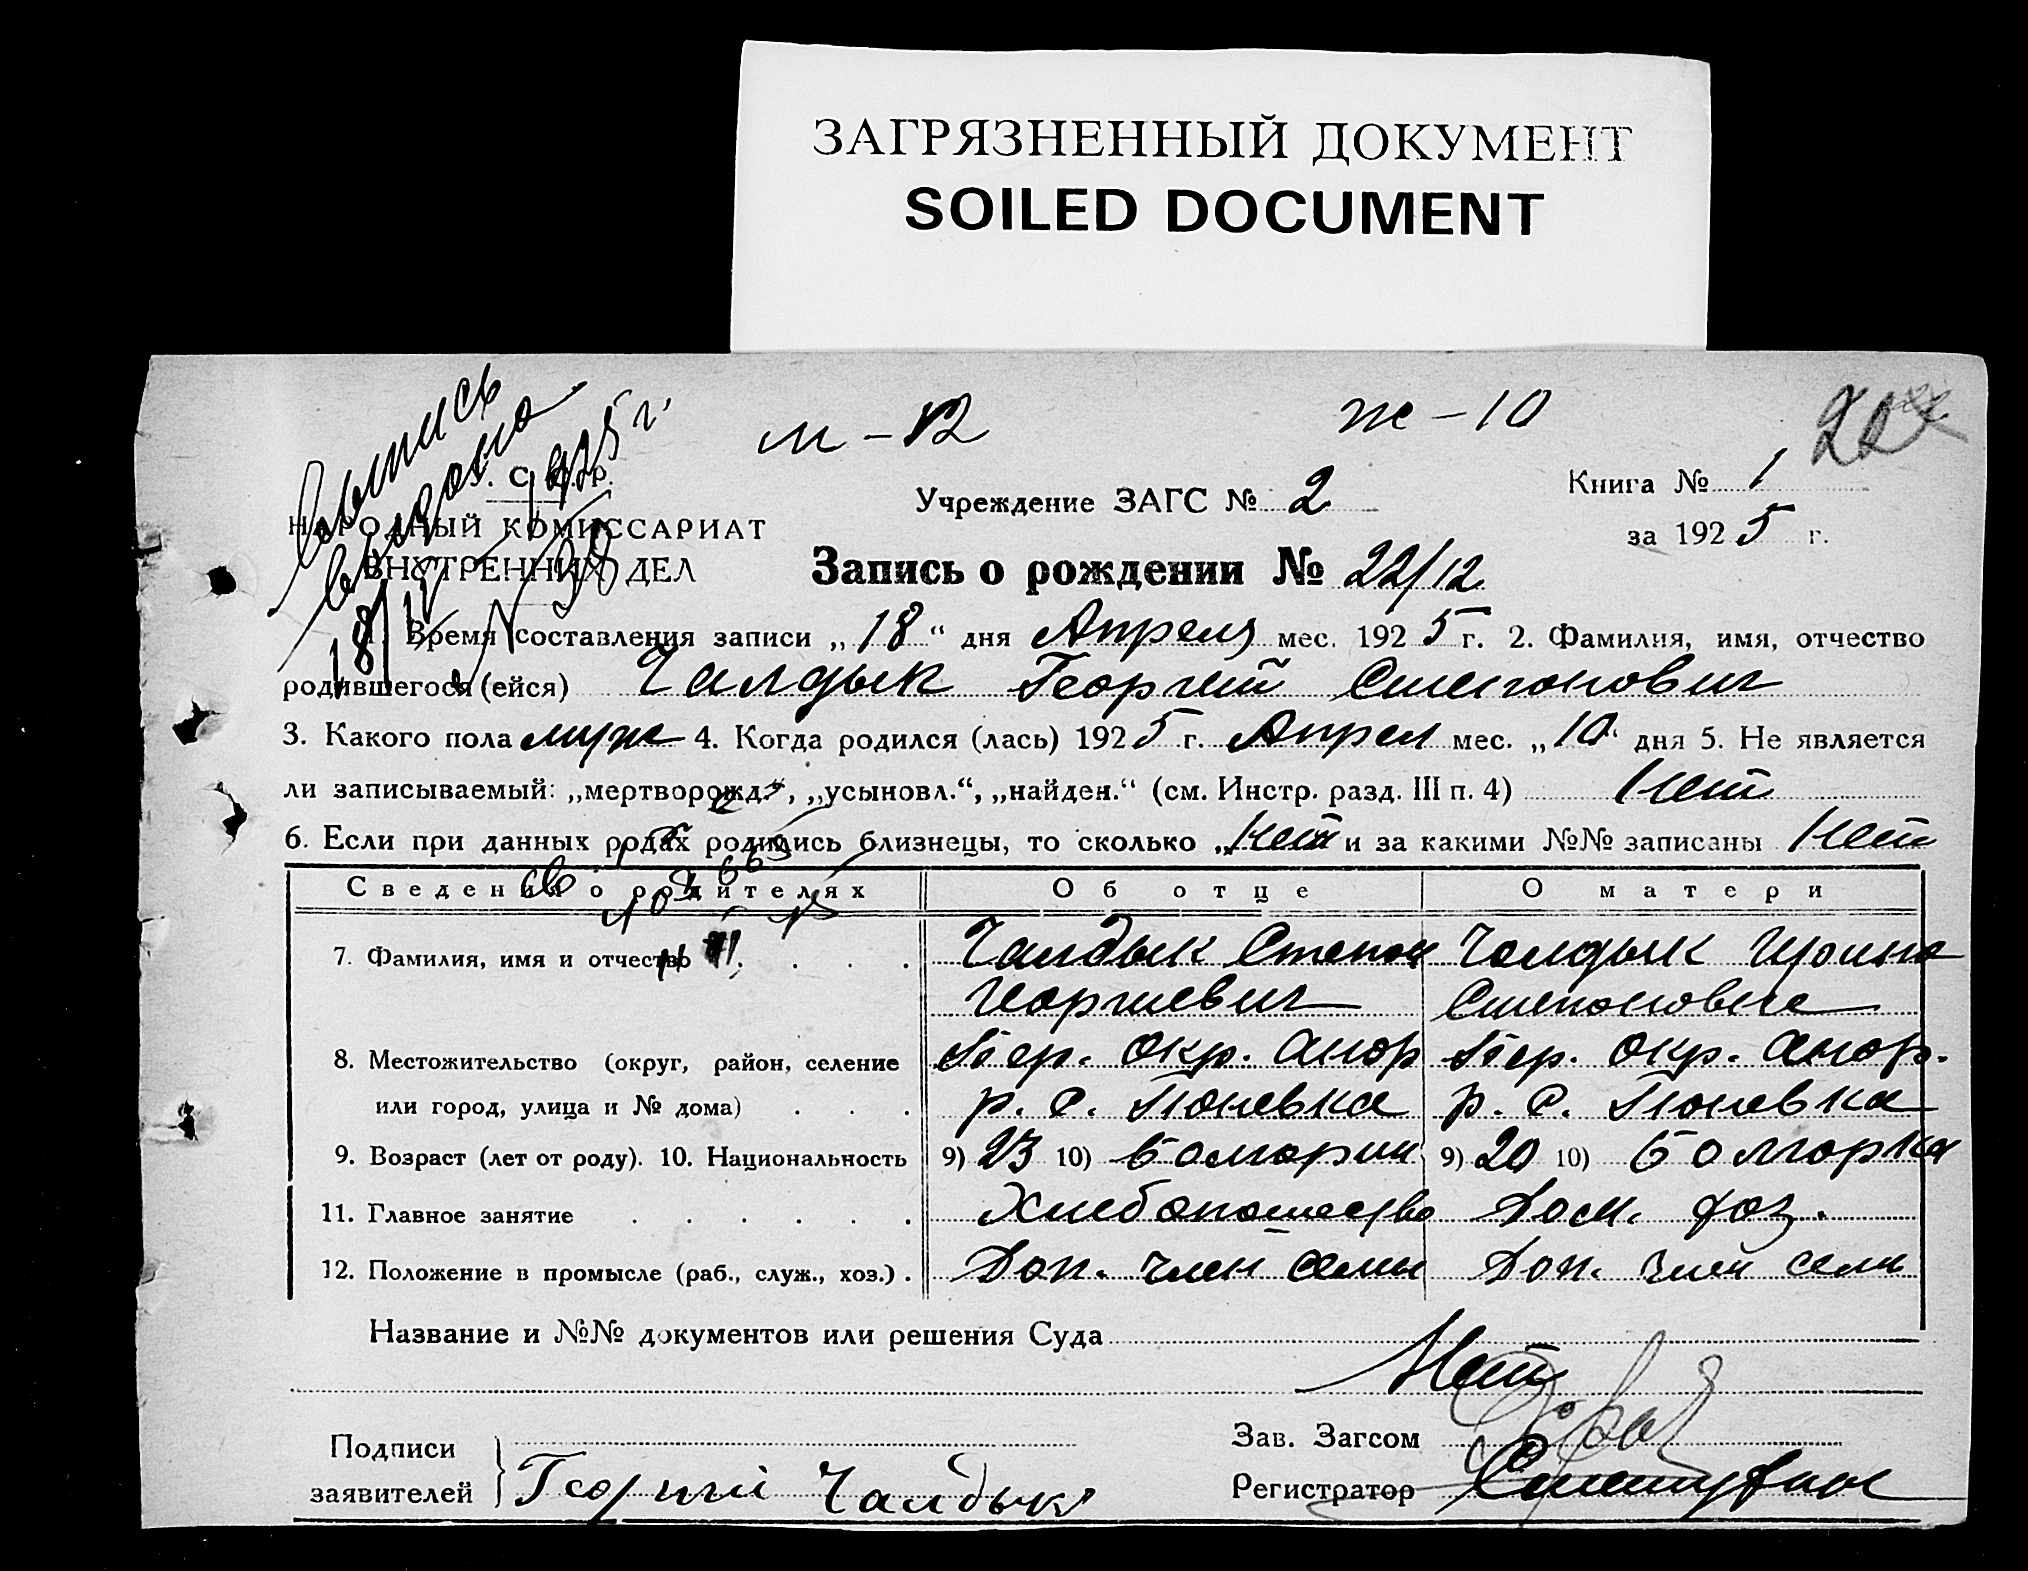 ЗАГРЯЗНЕННЫЙ ДОКУМЕНТ
SOILED DOCUMENT
м - 12
ж - 10
Выпись
выдана
1925 г.
С. С. Р.
НАРОДНЫЙ КОМИССАРИАТ
ВНУТРЕННИХ ДЕЛ
Учреждение ЗАГС № 2
Книга № 1
за 1925 г.
Запись о рождении № 22/12
1. Время составления записи „18“ дня Апреля мес. 1925 г. 2. Фамилия, имя, отчество
родившегося (ейся) Чалдык Георгий Степонович
3. Какого пола муж 4. Когда родился (лась) 1925 г. Апрел мес. „10“ дня 5. Не является
ли записываемый: „мертворожд.“, „усыновл.“, „найден.“ (см. Инстр. разд. III п. 4) Нет
6. Если при данных родах родились близнецы, то сколько „Нет и за какими №№ записаны Нет
Сведения о родителях Об отце О матери
7. Фамилия, имя и отчество Чалдык Степон Чолдык Ирина
Георгиевич Степоновне
8. Местожительство (округ, район, селение Окр. Окр.
или город, улица и № дома) р. с. р. с.
9. Возраст (лет от роду). 10. Национальность 9) 23 10) болгорин 9) 20 10) болгорка
11. Главное занятие Хлебопошество Дом. хоз.
12. Положение в промысле (раб., служ., хоз.) Доп. член семи Доп. член семи
Название и №№ документов или решения Суда
Нет
Подписи
заявителей Георгий Чалдык
Зав. Загсом
Регистратор